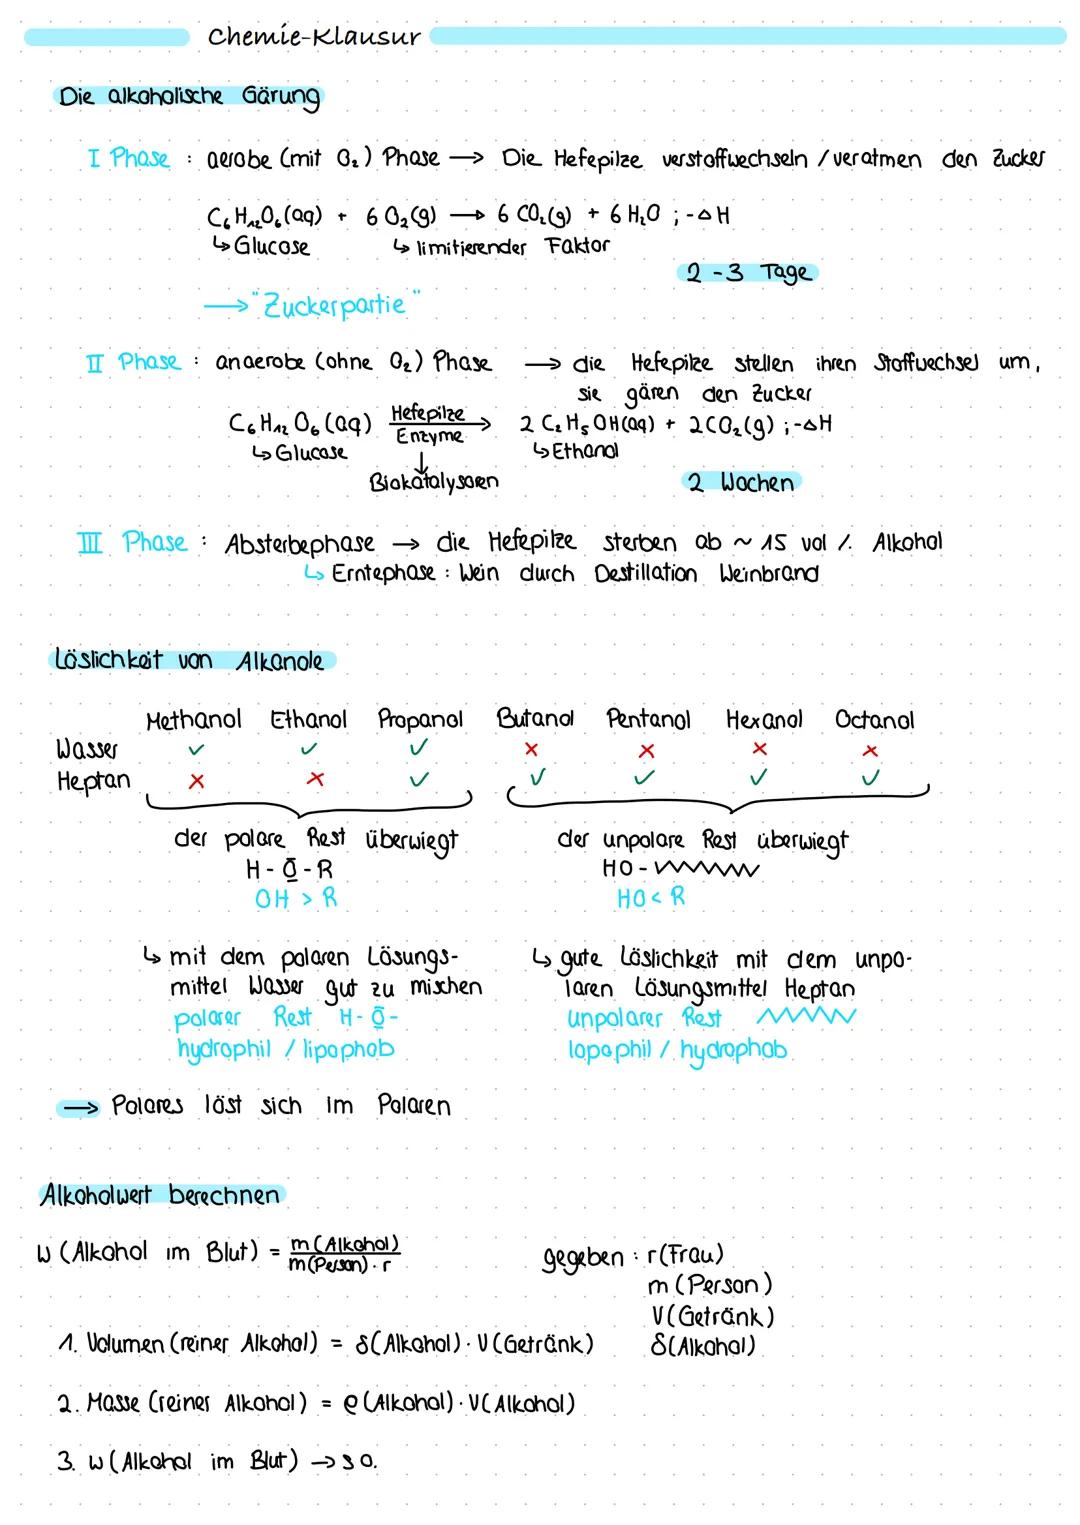 Chemie-Klausur
Die alkoholische Gärung
I Phase : aerobe (mit O₂) Phase → Die Hefepilze verstoffwechseln / veratmen den Zucker
C₆H₁₂O₆(aq) + 6 O₂(g) → 6 CO₂(g) + 6 H₂O ; -ΔH
↳ Glucose ↳ limitierender Faktor
2-3 Tage
→ "Zuckerpartie"
II Phase : anaerobe (ohne O₂) Phase → die Hefepilze stellen ihren Stoffwechsel um,
sie gären den Zucker
C₆H₁₂O₆(aq) Hefepilze Enzyme → 2 C₂H₅OH(aq) + 2CO₂(g) ; -ΔH
↳ Glucose ↓ ↳ Ethanol
Biokatalysoren 2 Wochen
III Phase : Absterbephase → die Hefepilze sterben ab ~ 15 vol % Alkohol
↳ Erntephase : Wein durch Destillation Weinbrand
Löslichkeit von Alkanole
Methanol Ethanol Propanol Butanol Pentanol Hexanol Octanol
Wasser ✓ ✓ ✓ × × × ×
Heptan × × ✓ ✓ ✓ ✓ ✓
der polare Rest überwiegt der unpolare Rest überwiegt
H-O̲̅-R HO-
OH > R HO < R
↳ mit dem polaren Lösungs- ↳ gute Löslichkeit mit dem unpo-
mittel Wasser gut zu mischen laren Lösungsmittel Heptan
polarer Rest H-O̲̅- unpolarer Rest
hydrophil / lipophob lopophil / hydrophob
→ Polares löst sich im Polaren
Alkoholwert berechnen
w (Alkohol im Blut) = m(Alkohol) / m(Person) · r gegeben : r(Frau)
m (Person)
V(Getränk)
1. Volumen (reiner Alkohol) = δ(Alkohol) · V(Getränk) δ(Alkohol)
2. Masse (reiner Alkohol) = ϱ(Alkohol) · V(Alkohol)
3. w (Alkohol im Blut) → s o.